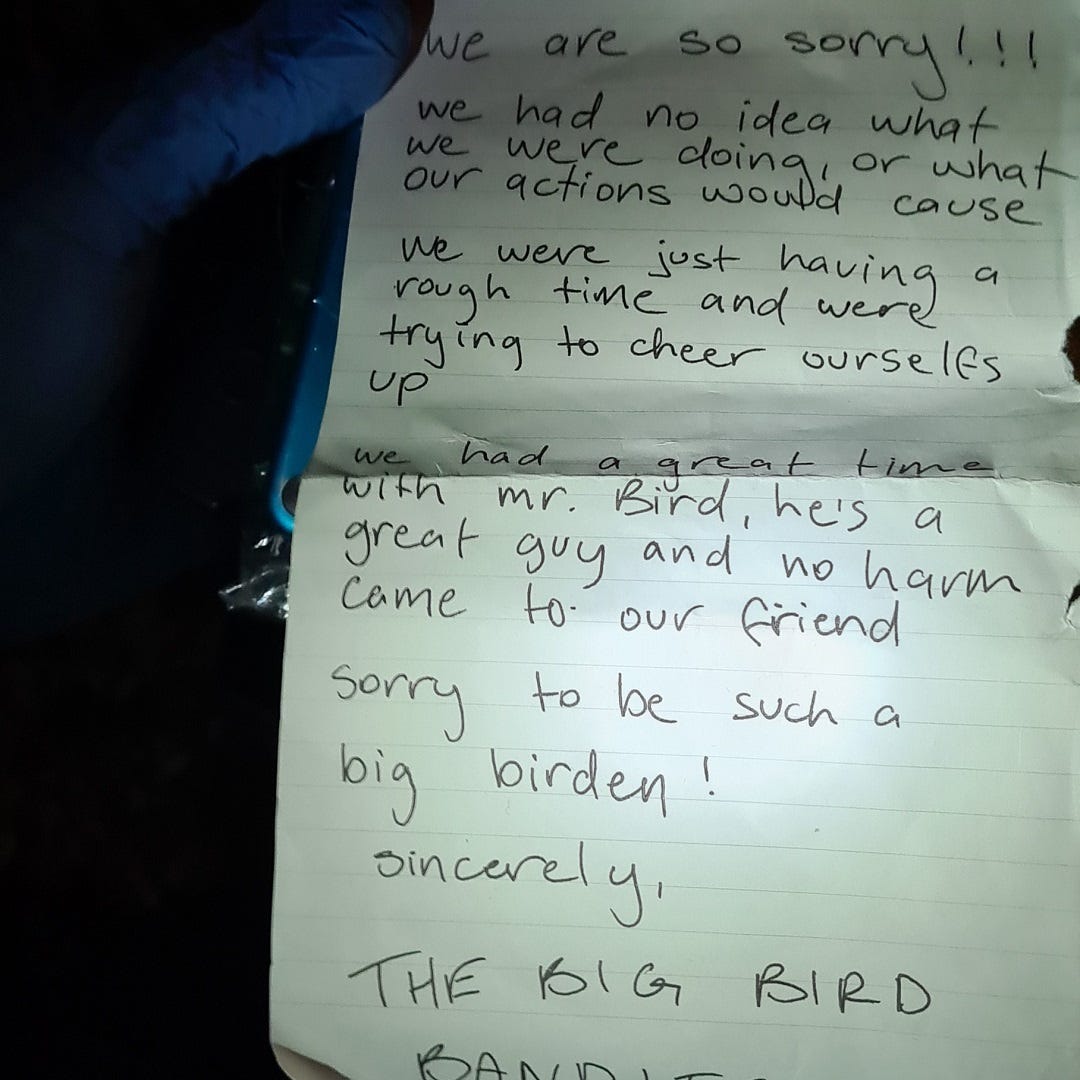 we are so sorry!!!
we had no idea what
we were doing, or what
our actions would cause
we were just having a
rough time and were
trying to cheer ourselfs
up
we had a great time
with mr. Bird, he's a
great guy and no harm
came to our friend
sorry to be such a
big birden!
sincerely,
THE BIG BIRD